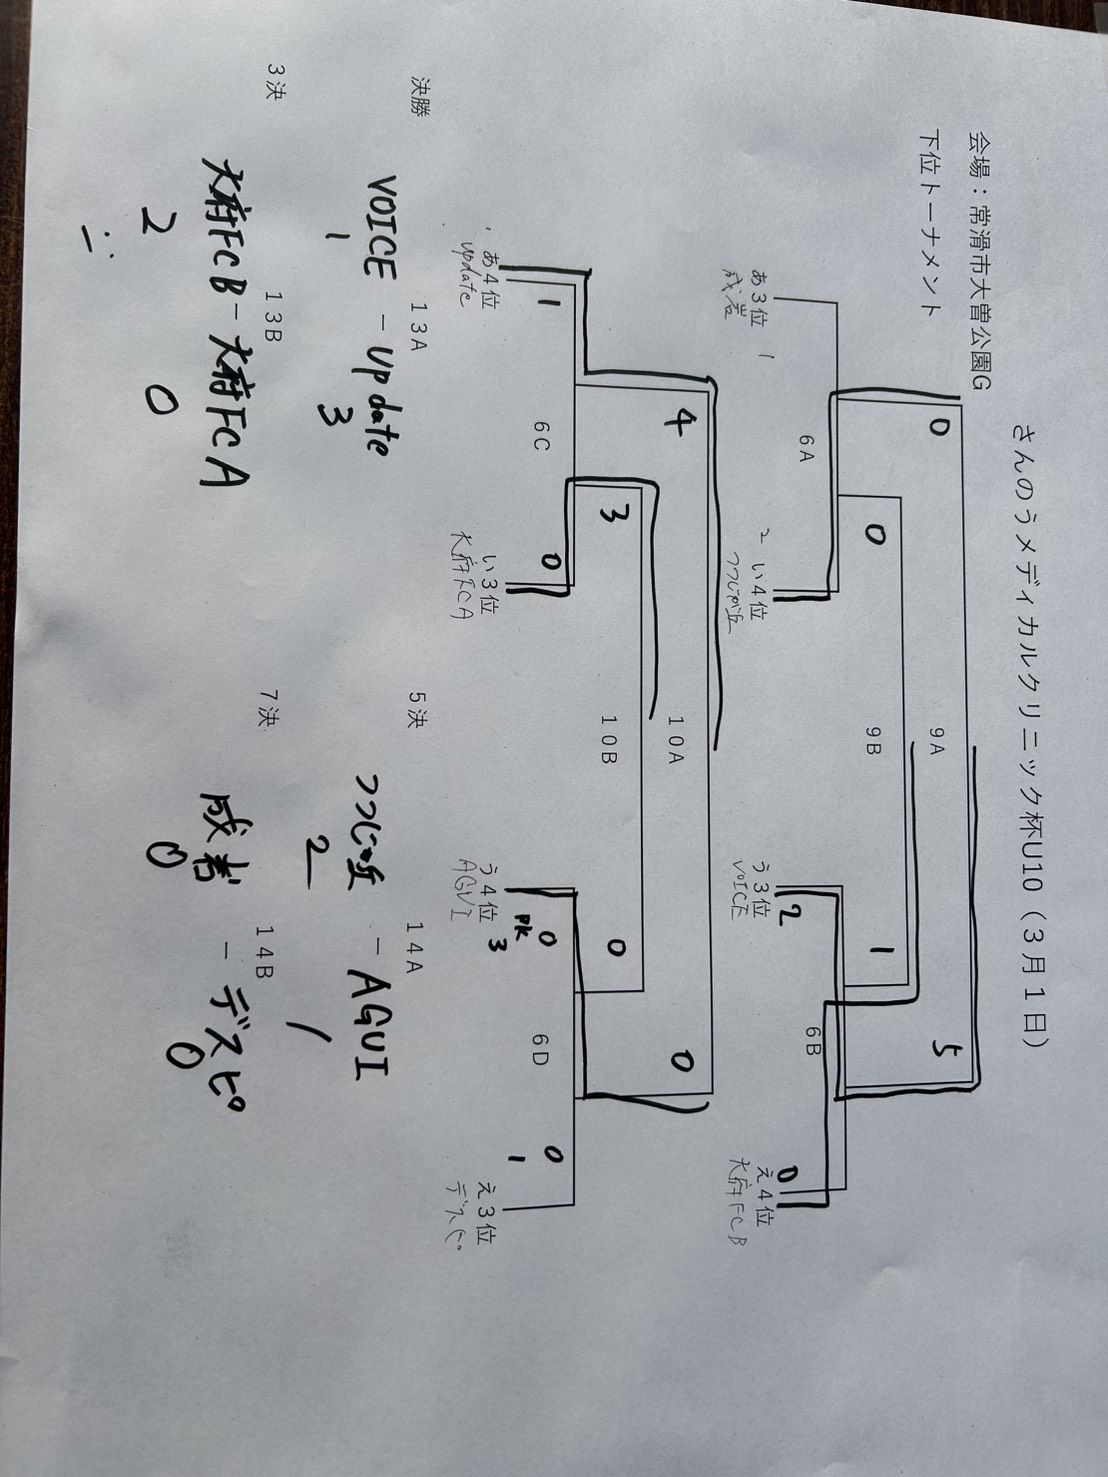 さんのうメディカルクリニック杯U10（3月1日）
会場：常滑市大曽公園G
下位トーナメント
0 9A 5
0 9B 1
6A 6B
あ3位 1 2 い4位 う3位 2 0 え4位
成岩 つつじが丘 VOICE 大府FCB
4 10A 0
3 10B 0
6C 6D
1 0 0 0
pk 3 1
あ4位 い3位 う4位 え3位
update 大府FCA AGUI デスピ
決勝 13A 5決 14A
VOICE - update つつじが丘 - AGUI
1 3 2 1
3決 13B 7決 14B
大府FCB - 大府FCA 成岩 - デスピ
2 0 0 0